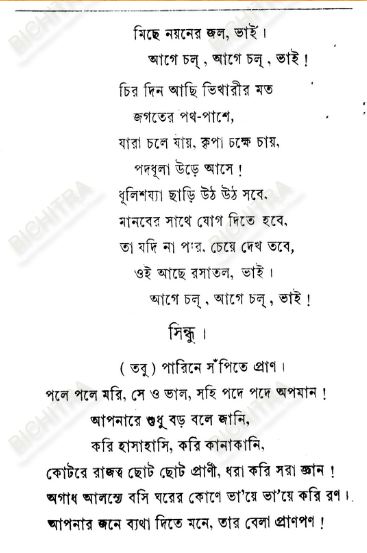 মিছে নয়নের জল, ভাই।
আগে চল্, আগে চল্, ভাই!
চির দিন আছি ভিখারীর মত
জগতের পথ-পাশে,
যারা চলে যায়, কৃপা চক্ষে চায়,
পদধূলা উড়ে আসে!
ধূলিশয্যা ছাড়ি উঠ উঠ সবে,
মানবের সাথে যোগ দিতে হবে,
তা যদি না পার, চেয়ে দেখ তবে,
ওই আছে রসাতল, ভাই।
আগে চল্, আগে চল্, ভাই!
সিন্ধু।
(তবু) পারিনে সঁপিতে প্রাণ।
পলে পলে মরি, সে ও ভাল, সহি পদে পদে অপমান!
আপনারে শুধু বড় বলে জানি,
করি হাসাহাসি, করি কানাকানি,
কোটরে রাজত্ব ছোট ছোট প্রাণী, ধরা করি সরা জ্ঞান!
অগাধ আলস্যে বসি ঘরের কোণে ভা'য়ে ভা'য়ে করি রণ।
আপনার জনে ব্যথা দিতে মনে, তার বেলা প্রাণপণ!
BICHITRA
BICHITRA
BICHITRA
BICHITRA
BICHITRA
BICHITRA